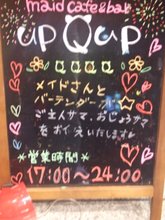 maid cafe&bar
up Q up
メイドさんと
バーテンダーが
ご主人サマ、おじょうサマ
をおむかえいたします♪
*営業時間*
17:00〜24:00